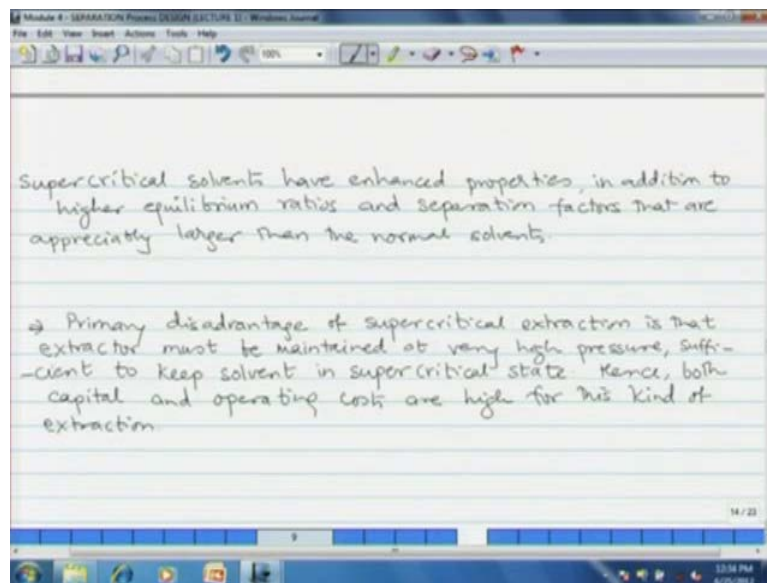 Module 4 - SEPARATION Process DESIGN (LECTURE 1) - Windows Journal
File Edit View Insert Actions Tools Help
100%
Supercritical solvents have enhanced properties, in addition to
higher equilibrium ratios and separation factors that are
appreciably larger than the normal solvents.
⇒ Primary disadvantage of supercritical extraction is that
extractor must be maintained at very high pressure, suffi-
-cient to keep solvent in supercritical state. Hence, both
capital and operating costs are high for this kind of
extraction
14 / 23
9
12:34 PM